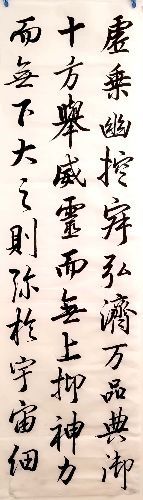 虛乘幽控寂弘濟万品典御
十方舉威靈而無上抑神力
而無下大之則弥於宇宙细